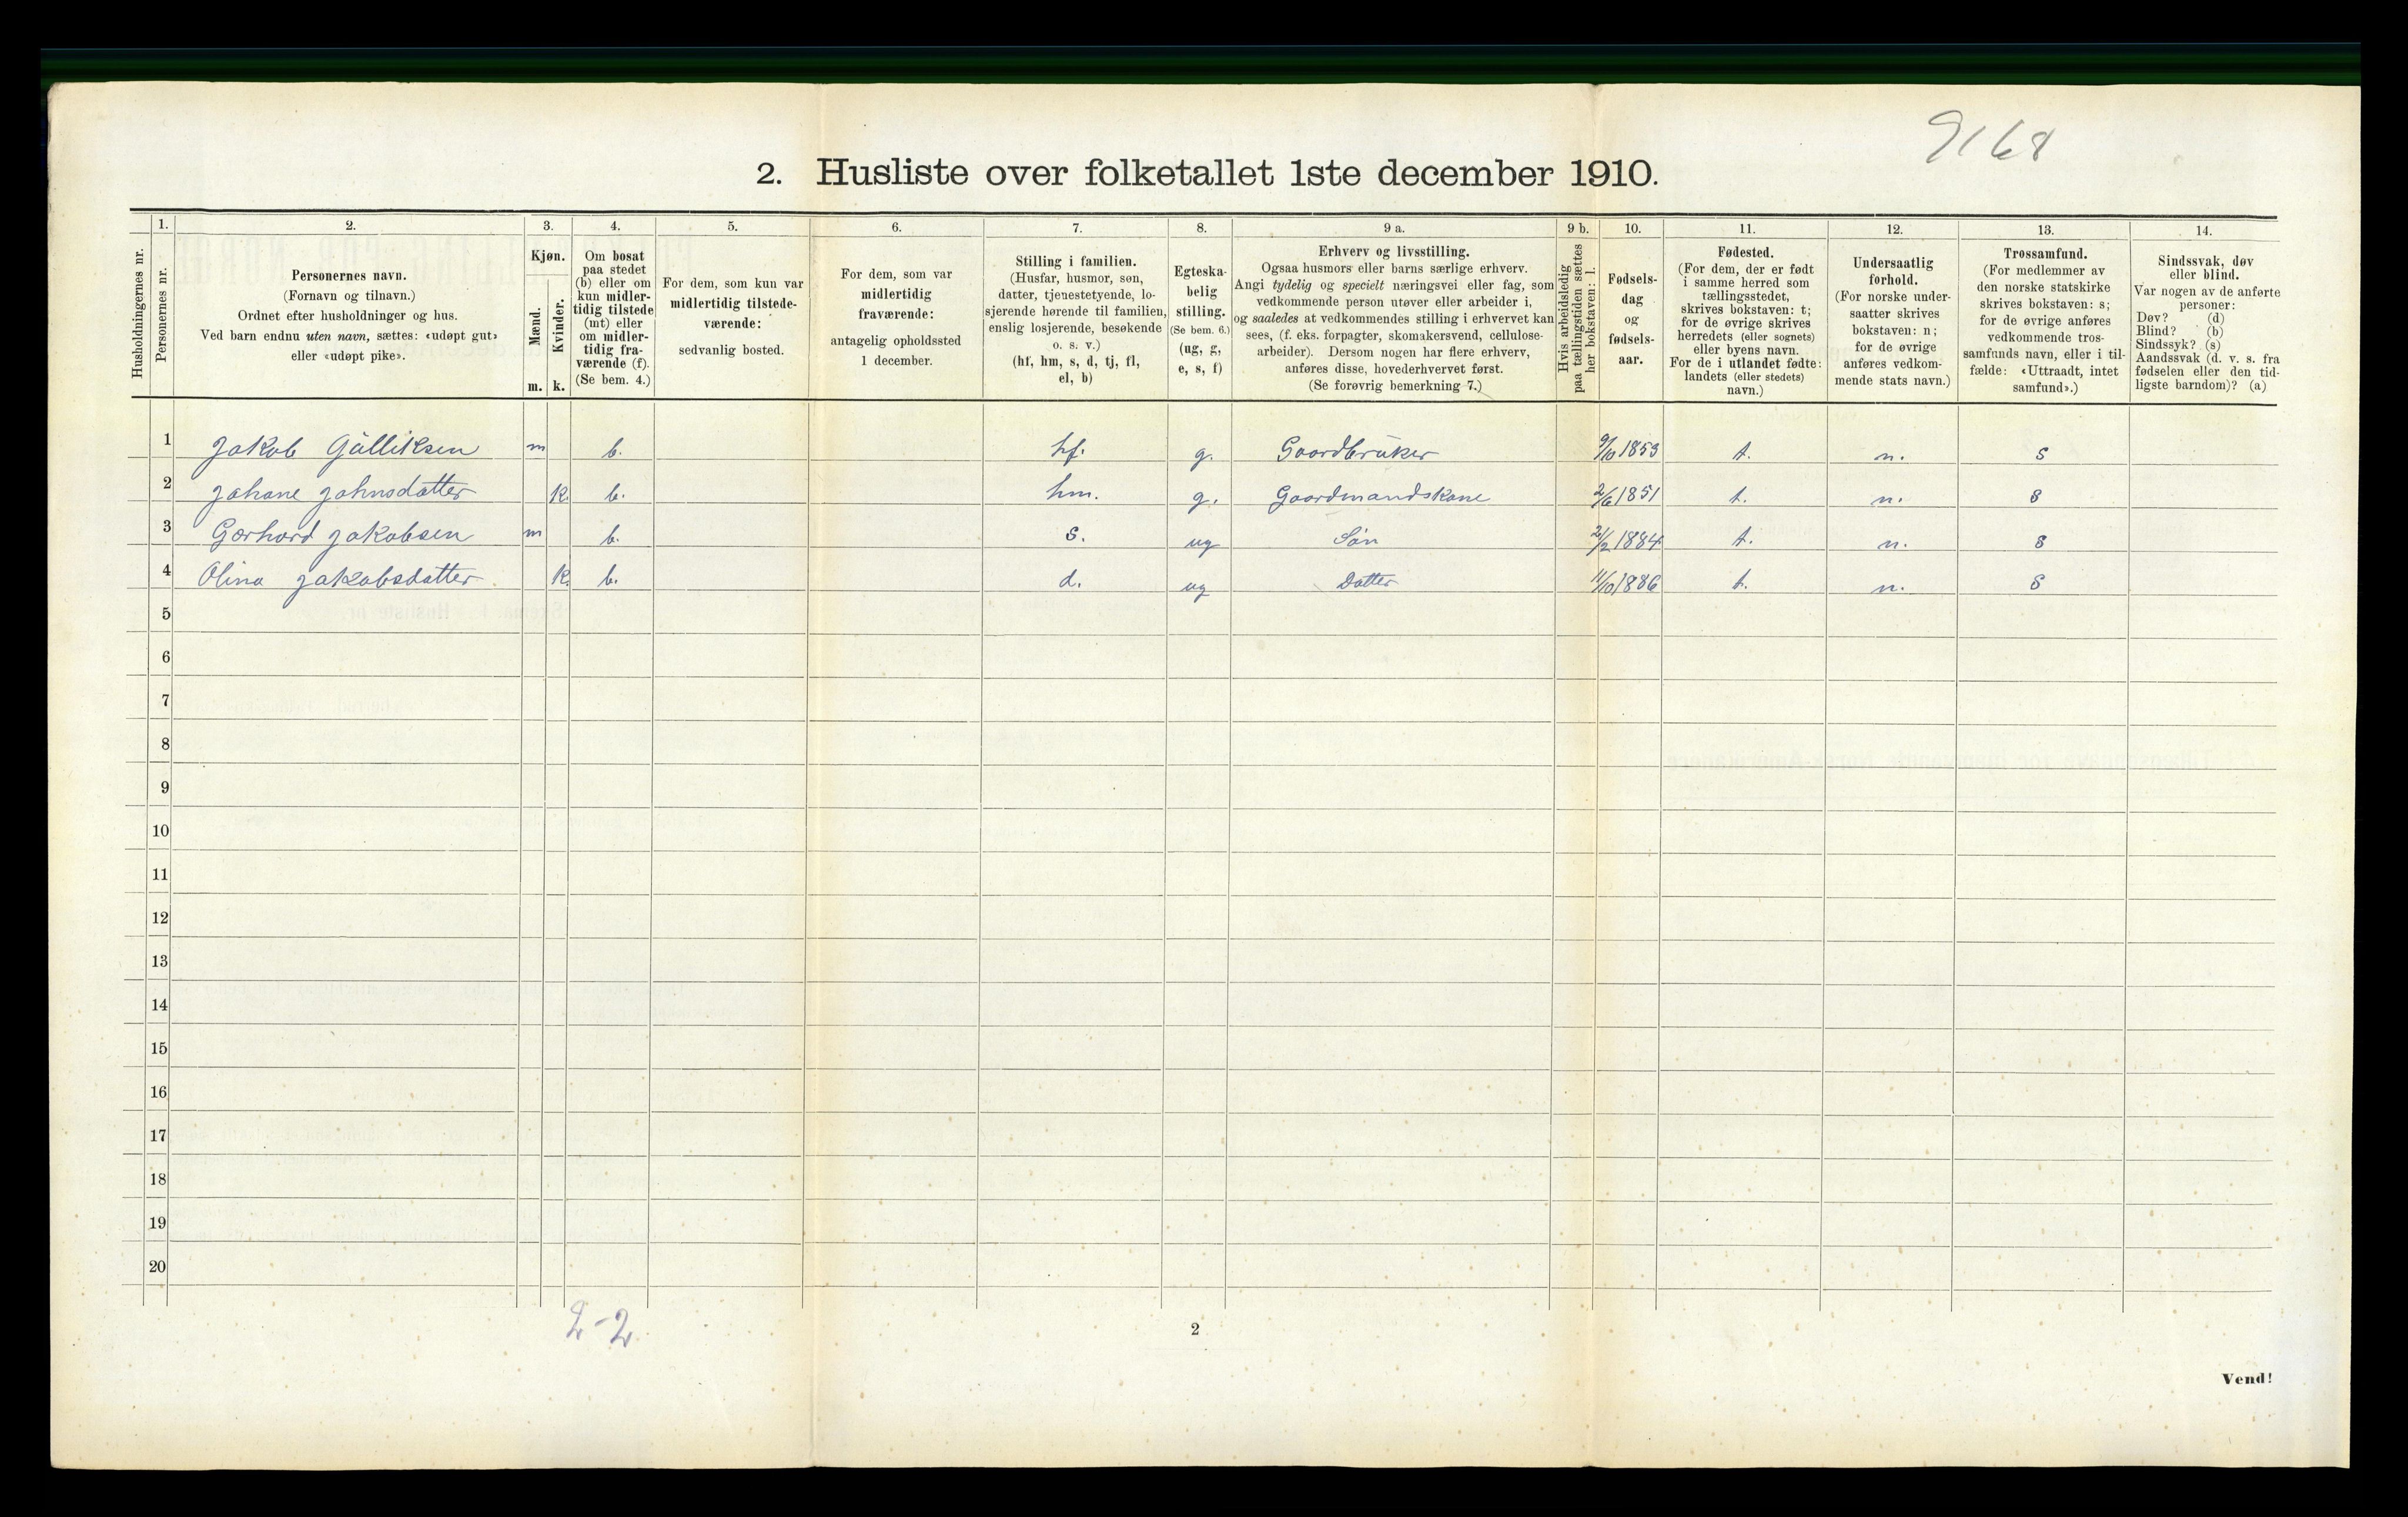 9168
2. Husliste over folketallet 1ste december 1910.
Husholdningernes nr.
1.
Personernes nr.
2.
Personernes navn.
(Fornavn og tilnavn.)
Ordnet efter husholdninger og hus.
Ved barn endnu uten navn, sættes: «udøpt gut»
eller «udøpt pike».
3.
Kjøn.
Mænd.
m.
Kvinder.
k.
4.
Om bosat
paa stedet
(b) eller om
kun midler-
tidig tilstede
(mt) eller
om midler-
tidig fra-
værende (f).
(Se bem. 4.)
5.
For dem, som kun var
midlertidig tilstede-
værende:
sedvanlig bosted.
6.
For dem, som var
midlertidig
fraværende:
antagelig opholdssted
1 december.
7.
Stilling i familien.
(Husfar, husmor, søn,
datter, tjenestetyende, lo-
sjerende hørende til familien,
enslig losjerende, besøkende
o. s. v.)
(hf, hm, s, d, tj, fl,
el, b)
8.
Egteska-
belig
stilling.
(Se bem. 6.)
(ug, g,
e, s, f)
9 a.
Erhverv og livsstilling.
Ogsaa husmors eller barns særlige erhverv.
Angi tydelig og specielt næringsvei eller fag, som
vedkommende person utøver eller arbeider i,
og saaledes at vedkommendes stilling i erhvervet kan
sees, (f. eks. forpagter, skomakersvend, cellulose-
arbeider). Dersom nogen har flere erhverv,
anføres disse, hovederhvervet først.
(Se forøvrig bemerkning 7.)
9 b.
Hvis arbeidsledig
paa tællingstiden sættes
her bokstaven: l.
10.
Fødsels-
dag
og
fødsels-
aar.
11.
Fødested.
(For dem, der er født
i samme herred som
tællingsstedet,
skrives bokstaven: t;
for de øvrige skrives
herredets (eller sognets)
eller byens navn.
For de i utlandet fødte:
landets (eller stedets)
navn.)
12.
Undersaatlig
forhold.
(For norske under-
saatter skrives
bokstaven: n;
for de øvrige
anføres vedkom-
mende stats navn.)
13.
Trossamfund.
(For medlemmer av
den norske statskirke
skrives bokstaven: s;
for de øvrige anføres
vedkommende tros-
samfunds navn, eller i til-
fælde: «Uttraadt, intet
samfund».)
14.
Sindssvak, døv
eller blind.
Var nogen av de anførte
personer:
Døv? (d)
Blind? (b)
Sindssyk? (s)
Aandssvak (d. v. s. fra
fødselen eller den tid-
ligste barndom)? (a)
1 Jakob Gulliksen m b. hf. g. Gaardbruker 9/10 1853 t. n. s
2 Johane Johnsdatter k. b. hm. g. Gaardmandskone 2/6 1851 t. n. s
3 Gerhard Jakobsen m b. s. ug Søn 21/2 1884 t. n. s
4 Olina Jakobsdatter k. b. d. ug Datter 11/10 1886 t. n. s
5
6
7
8
9
10
11
12
13
14
15
16
17
18
19
20
2-2
2
Vend!